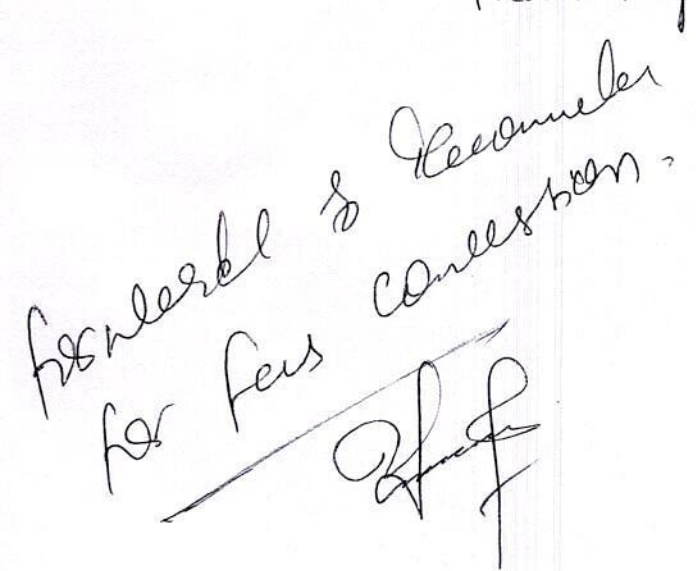 Forwarded & Recommended
for Fees concession.